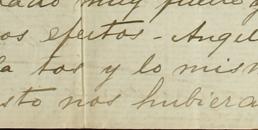 muy fuerte y
os efectos - Angel
la tos y lo mism
sto nos hubiera